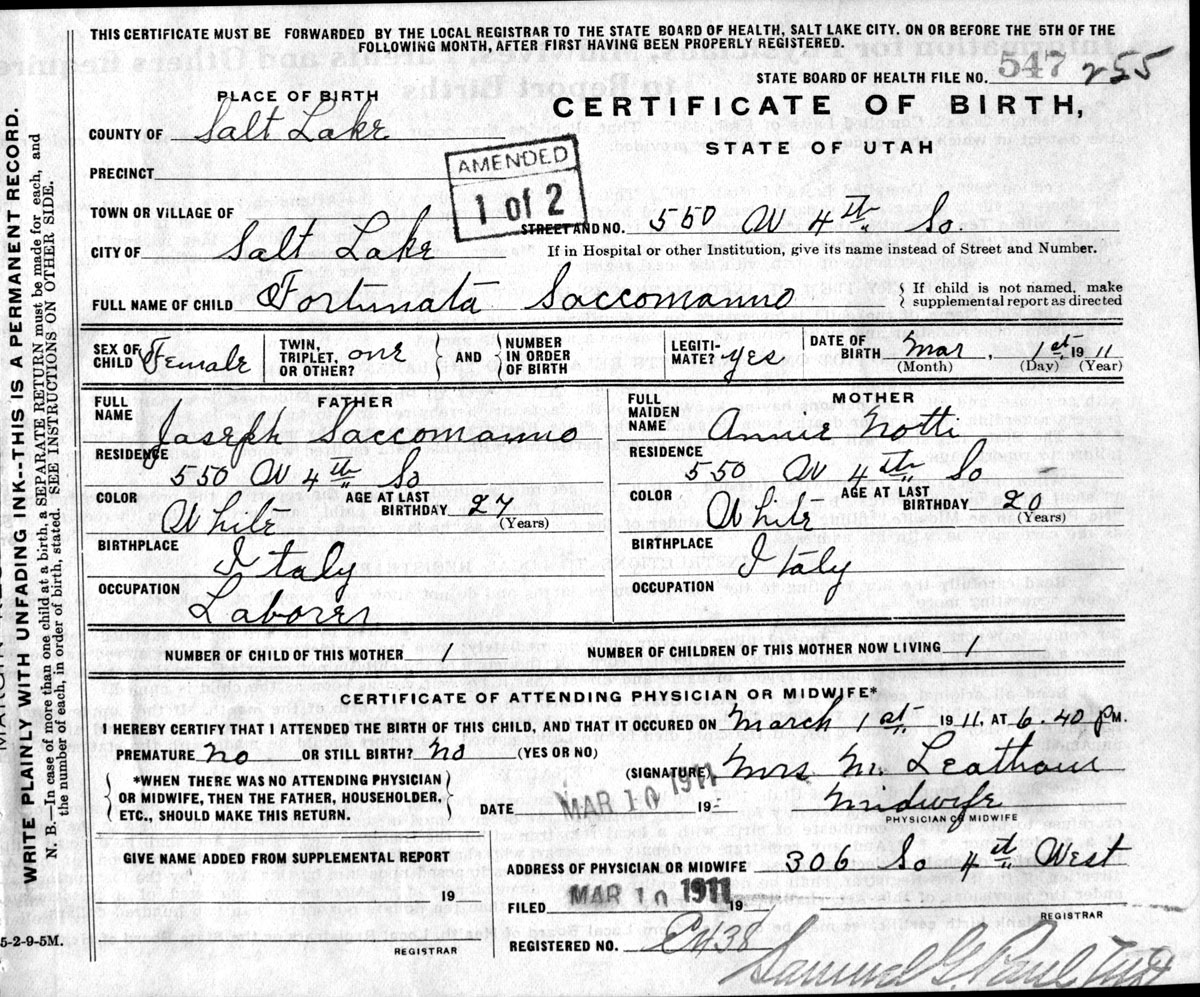 THIS CERTIFICATE MUST BE FORWARDED BY THE LOCAL REGISTRAR TO THE STATE BOARD OF HEALTH, SALT LAKE CITY. ON OR BEFORE THE 5TH OF THE
FOLLOWING MONTH, AFTER FIRST HAVING BEEN PROPERLY REGISTERED.
STATE BOARD OF HEALTH FILE NO. 547 255
PLACE OF BIRTH
CERTIFICATE OF BIRTH,
STATE OF UTAH
COUNTY OF Salt Lake
AMENDED
1 of 2
PRECINCT
TOWN OR VILLAGE OF
STREET AND NO. 550 W 4th So.
CITY OF Salt Lake
If in Hospital or other Institution, give its name instead of Street and Number.
FULL NAME OF CHILD Fortunata Saccomanno
If child is not named, make
supplemental report as directed
SEX OF CHILD Female
TWIN, TRIPLET, OR OTHER? one
AND
NUMBER IN ORDER OF BIRTH
LEGITIMATE? yes
DATE OF BIRTH Mar, 1st 1911
(Month) (Day) (Year)
FATHER
FULL NAME Joseph Saccomanno
RESIDENCE 550 W 4th So
COLOR White
AGE AT LAST BIRTHDAY 27 (Years)
BIRTHPLACE Italy
OCCUPATION Laborer
MOTHER
FULL MAIDEN NAME Annie Notti
RESIDENCE 550 W 4th So
COLOR White
AGE AT LAST BIRTHDAY 20 (Years)
BIRTHPLACE Italy
OCCUPATION
NUMBER OF CHILD OF THIS MOTHER 1
NUMBER OF CHILDREN OF THIS MOTHER NOW LIVING 1
CERTIFICATE OF ATTENDING PHYSICIAN OR MIDWIFE*
I HEREBY CERTIFY THAT I ATTENDED THE BIRTH OF THIS CHILD, AND THAT IT OCCURED ON March 1st. 1911, AT 6.40 PM.
PREMATURE No OR STILL BIRTH? No (YES OR NO)
*WHEN THERE WAS NO ATTENDING PHYSICIAN
OR MIDWIFE, THEN THE FATHER, HOUSEHOLDER,
ETC., SHOULD MAKE THIS RETURN.
(SIGNATURE) Mrs. M. Leatham
DATE MAR 10 1911 19
Midwife
PHYSICIAN OR MIDWIFE
GIVE NAME ADDED FROM SUPPLEMENTAL REPORT
19
REGISTRAR
ADDRESS OF PHYSICIAN OR MIDWIFE 306 So 4th West
FILED MAR 10 1911 19
REGISTRAR
REGISTERED NO. C438
Samuel G. Paul
WRITE PLAINLY WITH UNFADING INK--THIS IS A PERMANENT RECORD.
N. B.—In case of more than one child at a birth, a SEPARATE RETURN must be made for each, and
the number of each, in order of birth, stated. SEE INSTRUCTIONS ON OTHER SIDE.
5-2-9-5M.